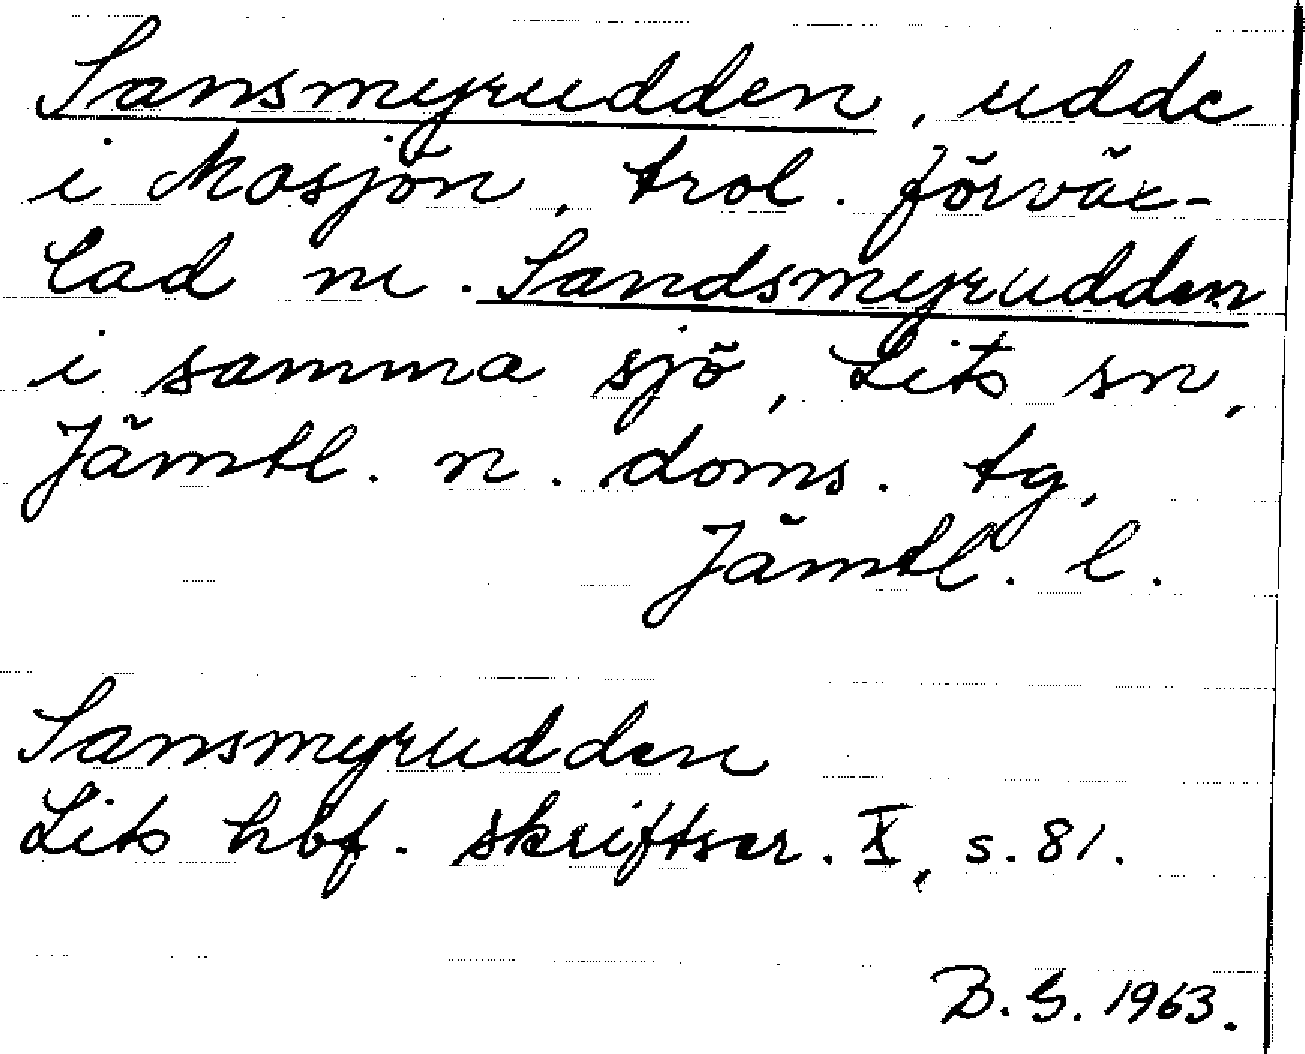 Sansmyrudden, udde
i Mosjön, trol. förväx-
lad m. Sandsmyrudden
i samma sjö, Lits sn,
Jämtl. n. doms. tg,
Jämtl. l.
Sansmyrudden
Lits hbf. skriftser. X, s. 81.
B. G. 1963.